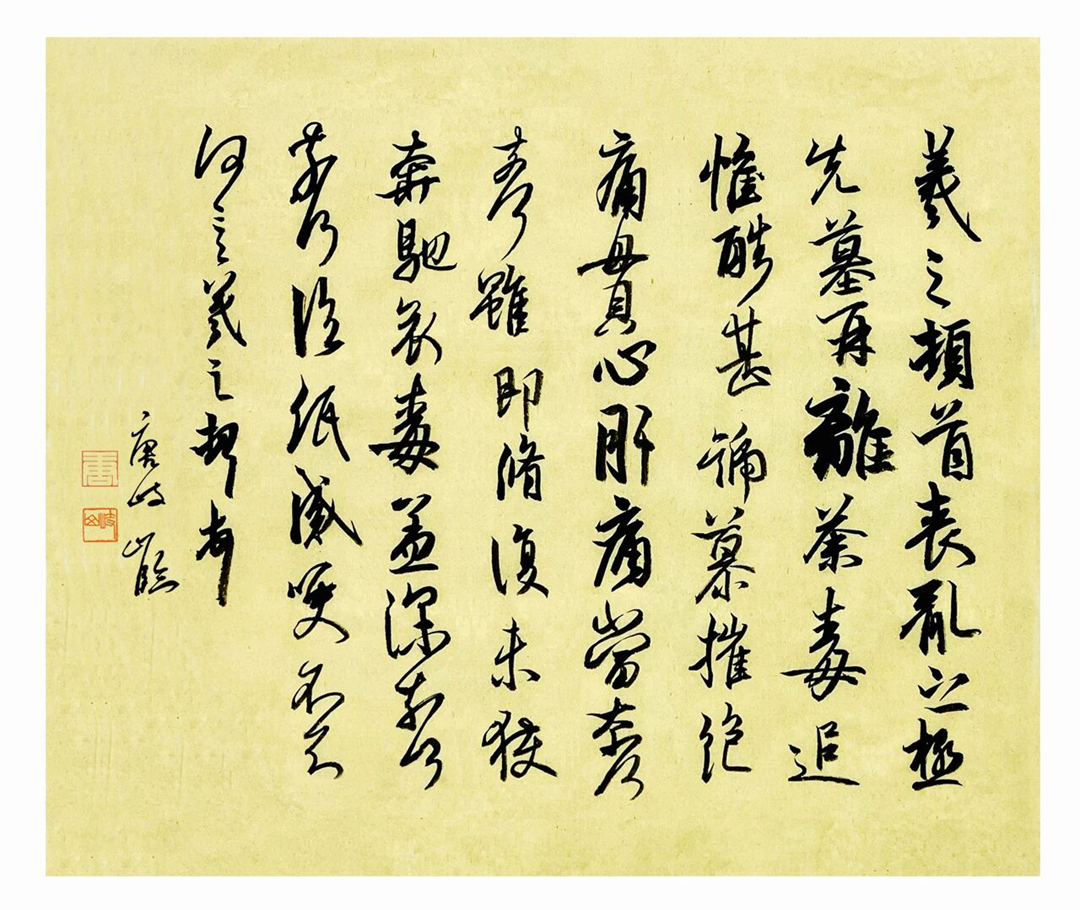 羲之頓首喪亂之極
先墓再離荼毒追
惟酷甚號慕摧絕
痛貫心肝痛當奈何
奈何雖即脩復未獲
奔馳哀毒益深奈何
奈何臨紙感哽不知
何言羲之頓首頓首
唐岐山臨
唐
岐山